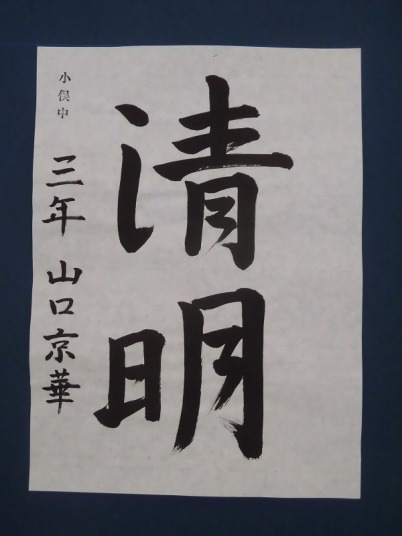 清明
小俣中
三年 山口京華